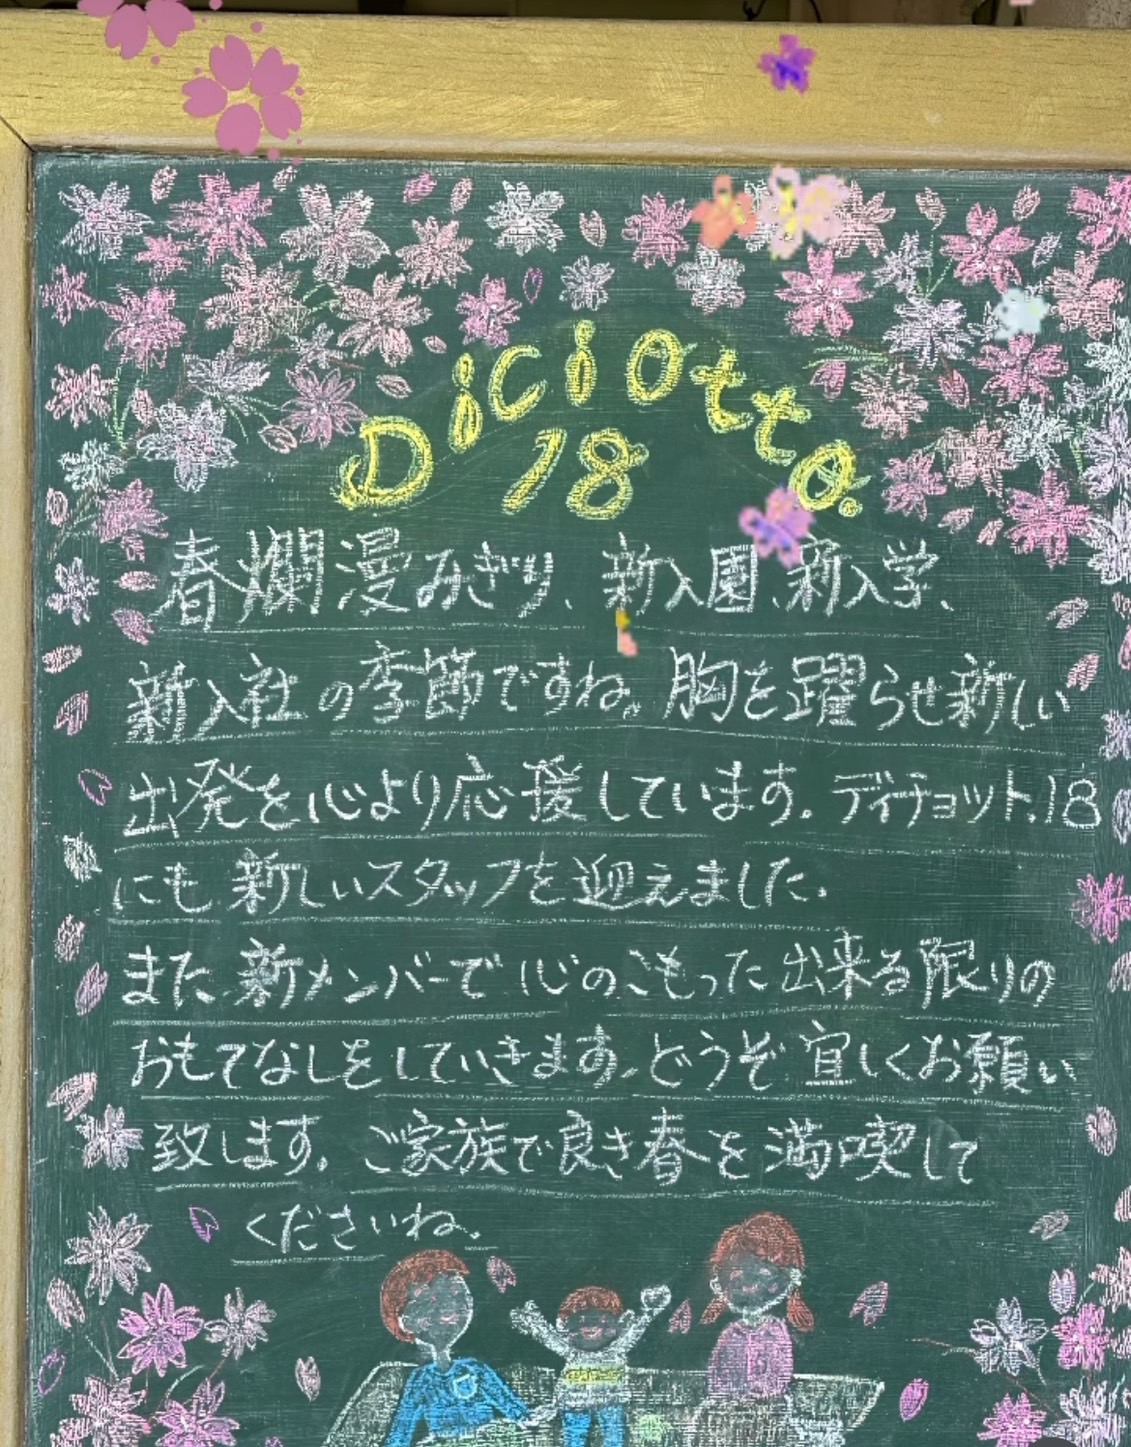 Diciotto.
18
春爛漫みぎり、新入園、新入学、
新入社の季節ですね。胸を躍らせ新しい
出発を心より応援しています。ディチョット.18
にも新しいスタッフを迎えました。
また新メンバーで心のこもった出来る限りの
おもてなしをしていきます。どうぞ宜しくお願い
致します。ご家族で良き春を満喫して
くださいね。